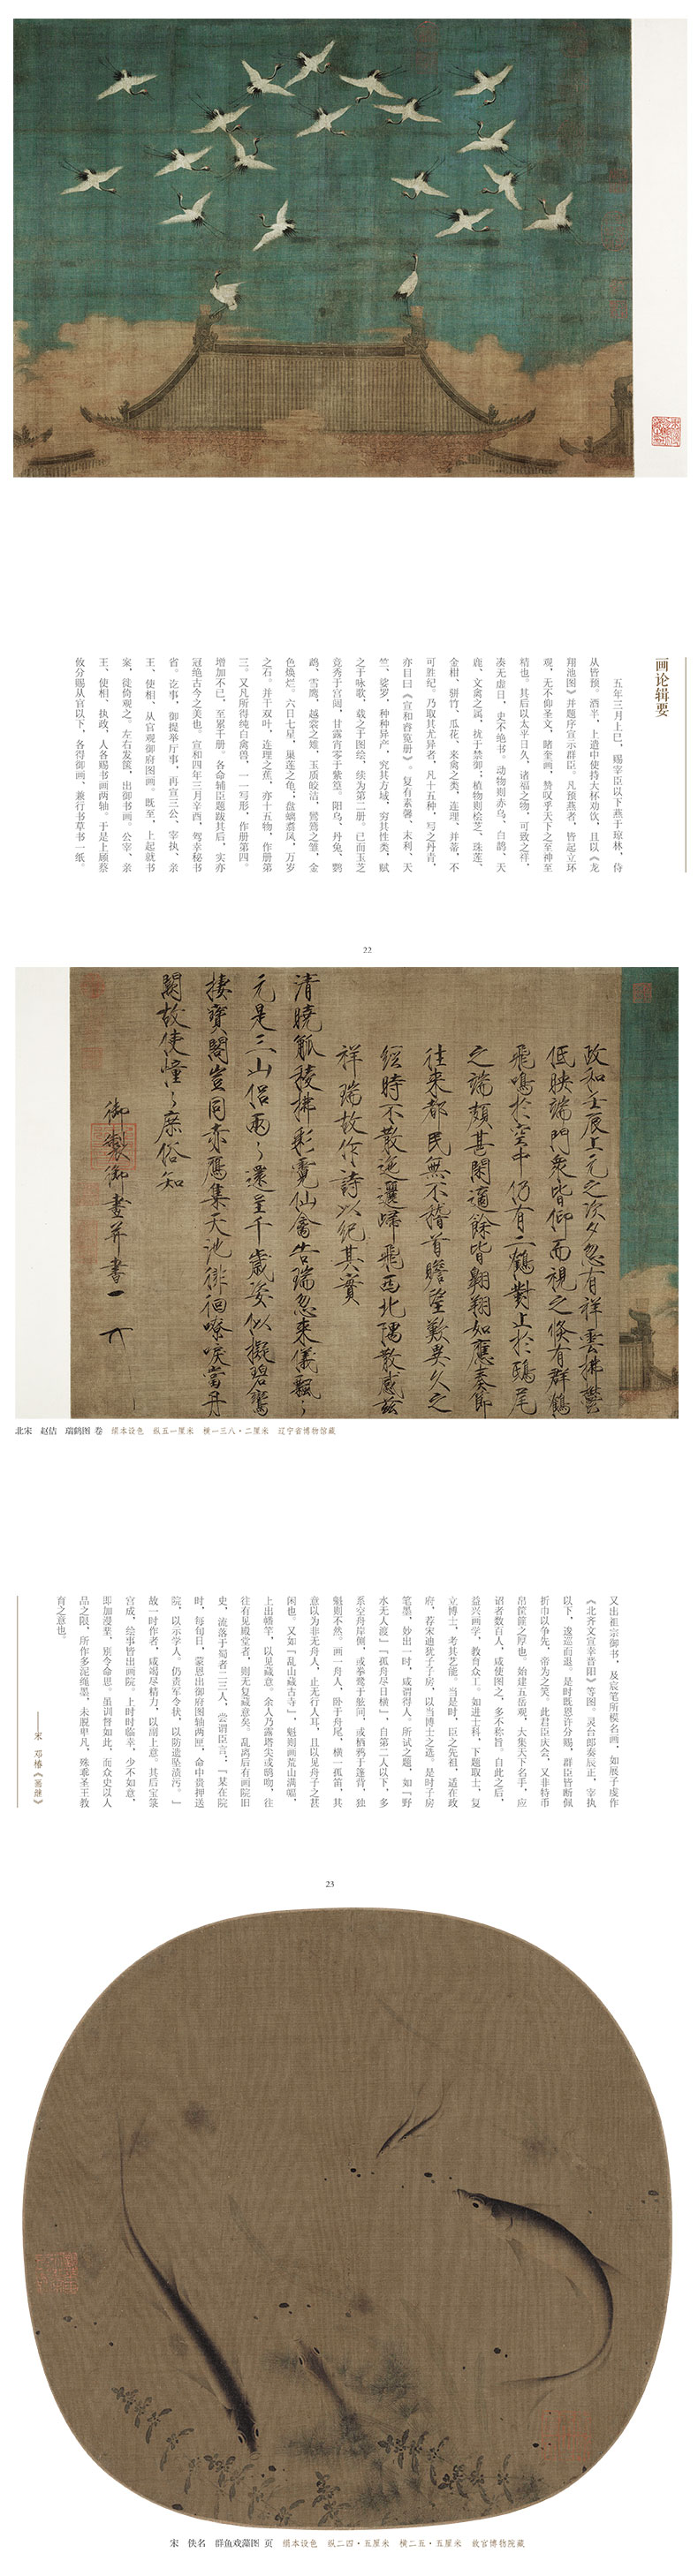 画论辑要
五年三月上巳，赐宰臣以下燕于琼林，侍
从皆预。酒半，上遣中使持大杯劝饮，且以《龙
翔池图》并题序宣示群臣。凡预燕者，皆起立环
观，无不仰圣文，睹奎画，赞叹乎天下之至神至
精也。其后以太平日久，诸福之物，可致之祥，
凑无虚日，史不绝书。动物则赤乌、白鹊、天
鹿、文禽之属，扰于禁御；植物则桧芝、珠莲、
金柑、骈竹、瓜花、来禽之类，连理、并蒂，不
可胜纪。乃取其尤异者，凡十五种，写之丹青，
亦目曰《宣和睿览册》。复有素馨、末利、天
竺、娑罗，种种异产，究其方域，穷其性类，赋
之于咏歌，载之于图绘，续为第二册。已而玉芝
竞秀于宫闼，甘露宵零于紫篁。阳乌、丹兔、鹦
鹉、雪鹰，越裳之雉，玉质皎洁，鸑鷟之雏，金
色焕烂。六目七星，巢莲之龟；盘螭翥凤，万岁
之石。并干双叶，连理之蕉，亦十五物，作册第
三。又凡所得纯白禽兽，一一写形，作册第四。
增加不已，至累千册。各命辅臣题跋其后，实亦
冠绝古今之美也。宣和四年三月辛酉，驾幸秘书
省。讫事，御提举厅事，再宣三公、宰执、亲
王、使相、从官观御府图画。既至，上起就书
案，徙倚观之。左右发箧，出御书画。公宰、亲
王、使相、执政，人各赐书画两轴。于是上顾蔡
攸分赐从官以下，各得御画、兼行书草书一纸。
22
政和壬辰上元之次夕忽有祥雲拂鬱
低映端門衆皆仰而視之倏有群鶴
飛鳴於空中仍有二鶴對止於鴟尾
之端頗甚閑適餘皆翱翔如應奏節
往來都民無不稽首瞻望歎異久之
經時不散迤邐歸飛西北隅散感茲
祥瑞故作詩以紀其實
清曉觚稜拂彩霓仙禽告瑞忽來儀飄〻
元是三山侶兩〻還呈千歲姿似擬碧鸞
棲寶閣豈同赤鴈集天池徘徊嘹唳當丹
闕故使憧〻庶俗知
御製御畫并書
北宋 赵佶 瑞鹤图 卷 绢本设色 纵五一厘米 横一三八·二厘米 辽宁省博物馆藏
又出祖宗御书，及宸笔所模名画，如展子虔作
《北齐文宣幸晋阳》等图。灵台郎奏辰正，宰执
以下，逡巡而退。是时既恩许分赐，群臣皆断佩
折巾以争先，帝为之笑。此君臣庆会，又非特币
帛筐篚之厚也。始建五岳观，大集天下名手，应
诏者数百人，咸使图之，多不称旨。自此之后，
益兴画学，教育众工。如进士科，下题取士，复
立博士，考其艺能。当是时，臣之先祖，适在政
府，荐宋迪犹子子房，以当博士之选。是时子房
笔墨，妙出一时，咸谓得人。所试之题，如『野
水无人渡』『孤舟尽日横』，自第二人以下，多
系空舟岸侧，或拳鹭于舷间，或栖鸦于篷背，独
魁则不然。画一舟人，卧于舟尾，横一孤笛，其
意以为非无舟人，止无行人耳，且以见舟子之甚
闲也。又如『乱山藏古寺』，魁则画荒山满幅，
上出幡竿，以见藏意。余人乃露塔尖或鸱吻，往
往有见殿堂者，则无复藏意矣。乱离后有画院旧
史，流落于蜀者二三人，尝谓臣言：『某在院
时，每旬日，蒙恩出御府图轴两匣，命中贵押送
院，以示学人。仍责军令状，以防遗坠渍污。』
故一时作者，咸竭尽精力，以副上意。其后宝箓
宫成，绘事皆出画院。上时时临幸，少不如意，
即加漫垩，别令命思。虽训督如此，而众史以人
品之限，所作多泥绳墨，未脱卑凡，殊乖圣王教
育之意也。
——宋 邓椿《画继》
23
宋 佚名 群鱼戏藻图 页 绢本设色 纵二四·五厘米 横二五·五厘米 故宫博物院藏